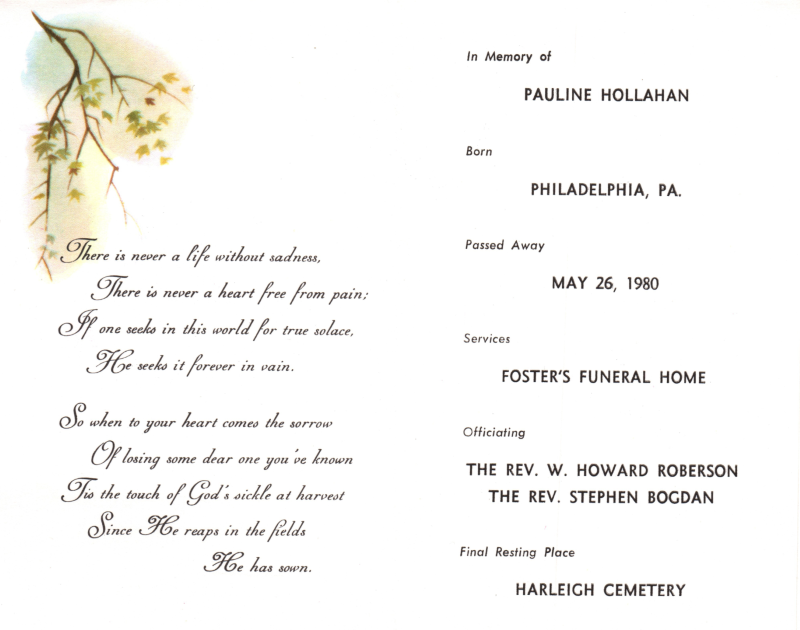 There is never a life without sadness,
There is never a heart free from pain;
If one seeks in this world for true solace,
He seeks it forever in vain.
So when to your heart comes the sorrow
Of losing some dear one you've known
Tis the touch of God's sickle at harvest
Since He reaps in the fields
He has sown.
In Memory of
PAULINE HOLLAHAN
Born
PHILADELPHIA, PA.
Passed Away
MAY 26, 1980
Services
FOSTER'S FUNERAL HOME
Officiating
THE REV. W. HOWARD ROBERSON
THE REV. STEPHEN BOGDAN
Final Resting Place
HARLEIGH CEMETERY